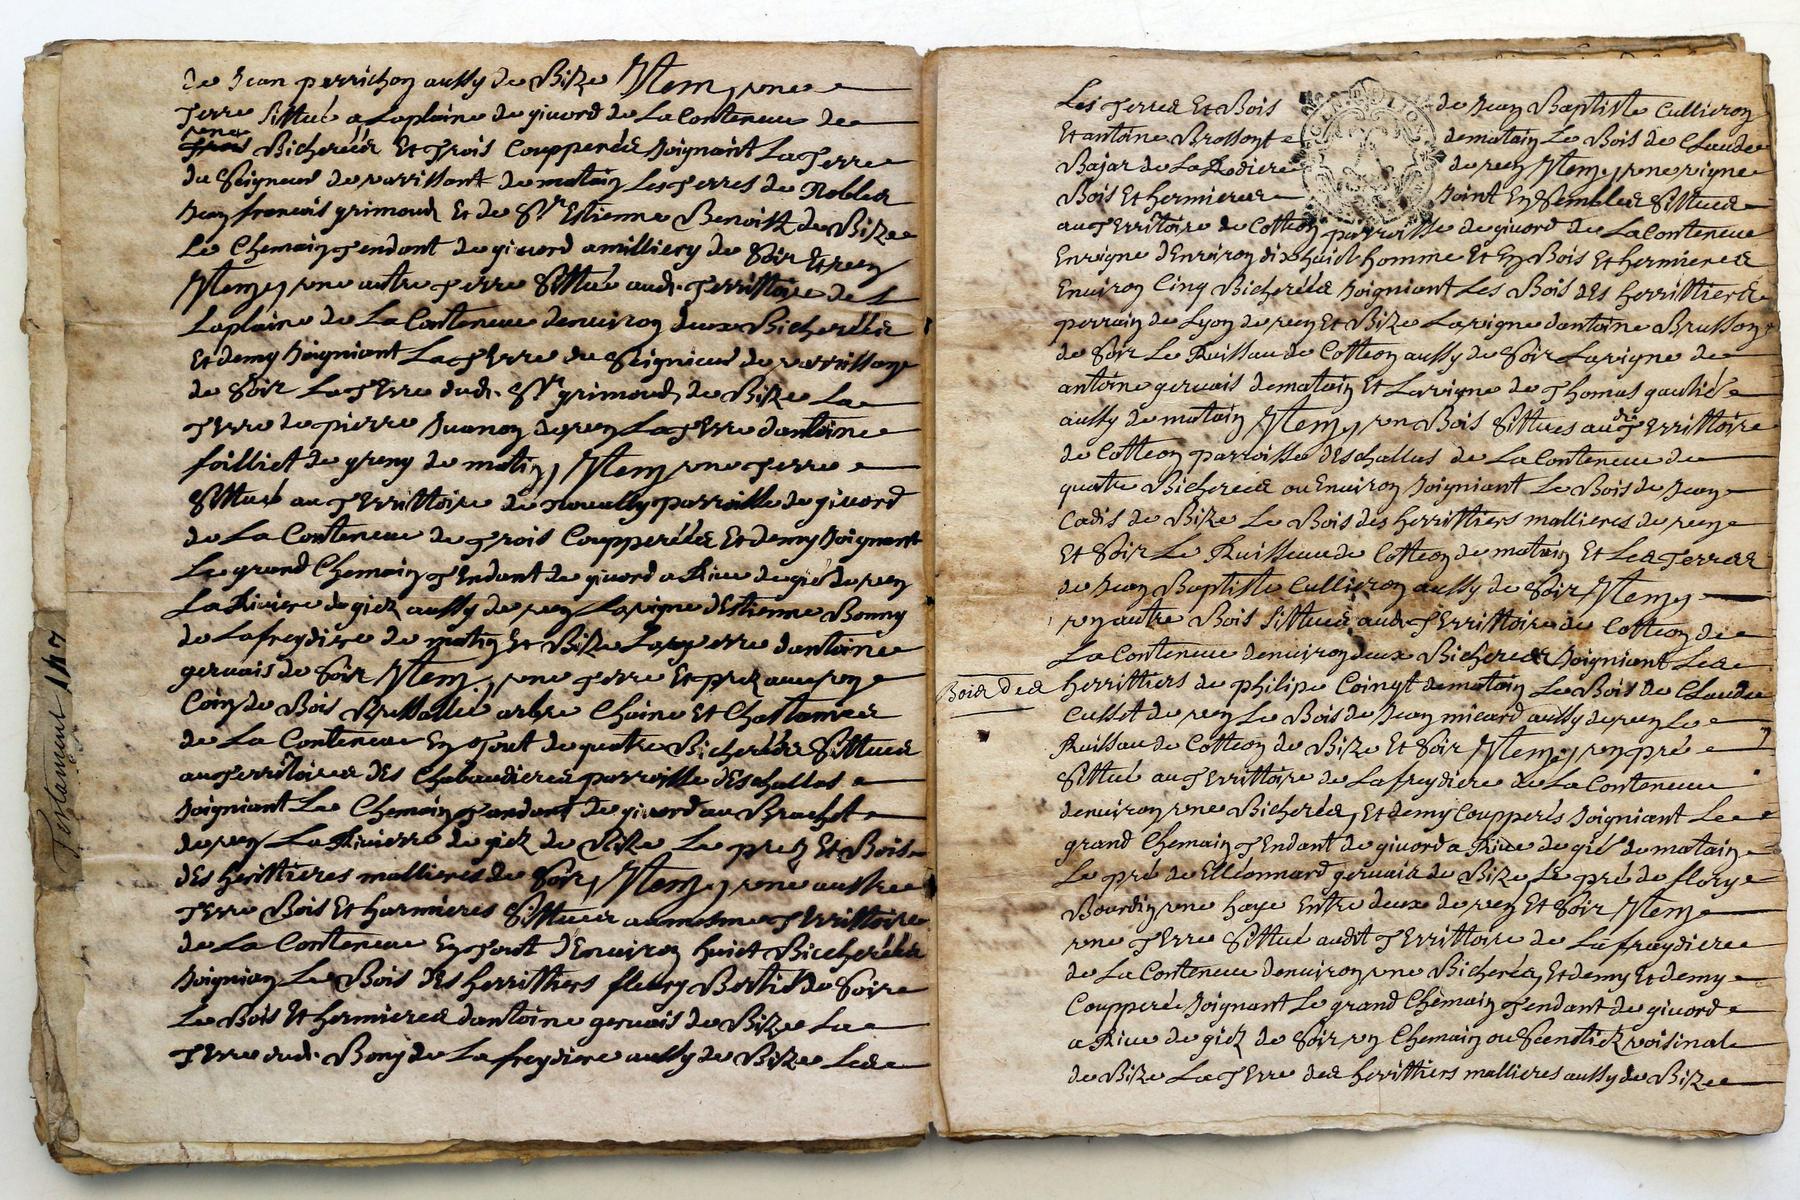 de Jean perrichon aussy de Bize Jtem, une
Terre sittué a Laplaine de givord de La Contenue de
une
Bicheréés Et Trois Coupperéés Joignant La Terre
du Seigneur de varrissant de matain Les Terres de Nobles
Jean francois grimoud Et de Sr Estienne Benoist de Bize
Le Chemain Tendant de givord a milliery de Soir Et ven
Jtem, une autre Terre Sittué aud. Territtoire de L
Laplaine de La Contenue denviron deux Bicheréés
Et demy Joigniant La Terre du Seignieur de varrissan
de Soir La Terre dud. Sr grimoud, de Bize La
Terre de pierre Juanon de ven La Terre dantoine
foilliet de greny de matin, Jtem une Terre
Sittué au Territtoire de Noually parroisse de givord
de La Contenue de Trois Coupperéés Et demy Joignant
Le grand Chemain Tendant de givord a Rive de gié de ven
La Riviere de giez aussy de ven La vigne dEstienne Bonny
de Lafreydiere de matin Et Bize La Terre dantoine
gervais de Soir Jtem, une Terre Et prez avec un
Coin de Bois arbre Chaine Et Chastanier
de La Contenue En Tout de quatre Bicheréés Sittués
au Territoires des Chabaudieres parroisse dEschallas
Joigniant Le Chemain Tendant de givord au Brachet
de ven La Rivierre de giez de Bize Le prez Et Bois
des herittieres mallieres de Soir, Jtem, une auttre
Terre Bois Et harmieres Sittués au mesme Territtoire
de La Contenue En Tout dEnviron huict Biccheréés
Joignian Le Bois des herrittiers fleury Bertie de Soire
Le Bois Et hermieres dantoine gervais de Bize La
Terre dud. Bony de La freydiere aussy de Bize Les
Testament 147
Les Terres Et Bois de Jean Baptiste Cullieron
Et antoine Brossont de matain Le Bois de Claude
Bajar de La Rodiere de ven Jtem, une vigne
Bois Et hermieres Joint En Sembles Sittués
au Territoire de Cotteon parroisse de givord de La Contenue
En vigne dEnviron dix huict homme Et En Bois Et hermieres
Environ Cinq Bicheréés Joigniant Les Bois des herrittiers
perrain de Lyon de ven Et Bize La vigne dantoine Brusson
de Soir Le Ruissau de Cotteon aussy de Soir La vigne de
antoine gervais de matain Et La vigne de Thomas gautié
aussy de matain Jtem, un Bois Sittues aud Territtoire
de Cotteon parroisse dEschallas de La Contenue de
quatre Bicherees ou Environ Joigniant Le Bois de Jean
Cadis de Bize Le Bois des herrittiers mallieres de ven
Et Soir Le Ruisseau de Cotteon de matain Et Les Terres
de Jean Baptiste Cullieron aussy de Soir Jtem,
un autre Bois Sittués aud. Territtoire de Cotteon de
La Contenue denviron deux Bicherees Joigniant Les
Bois des
herrittiers de philipe Coingt de matain Le Bois de Claude
Cusset de ven Le Bois de Jean micard aussy de ven Le
Ruissau de Cotteon de Bize Et Soir Jtem, un pré
Sittué au Territtoire de Lafreydiere de La Contenue
denviron une Bicheréé, Et demy Coupperés Joigniant Le
grand Chemain Tendant de givord a Rive de gié de matain
Le pré de Elléonnard gervais de Bize, Le pré de flory
Bourdin une haye Entre deux de ven Et Soir Jtem
une Terre Sittué audit Territtoire de Lafreydiere
de La Contenue denviron une Bicheréé, Et demy Et demy
Coupperé Joignant Le grand Chemain Tendant de givord
a Rive de giez de Soir un Chemain ou Scentiez voisinal
de Bize La Terre des herrittiers mallieres aussy de Bize